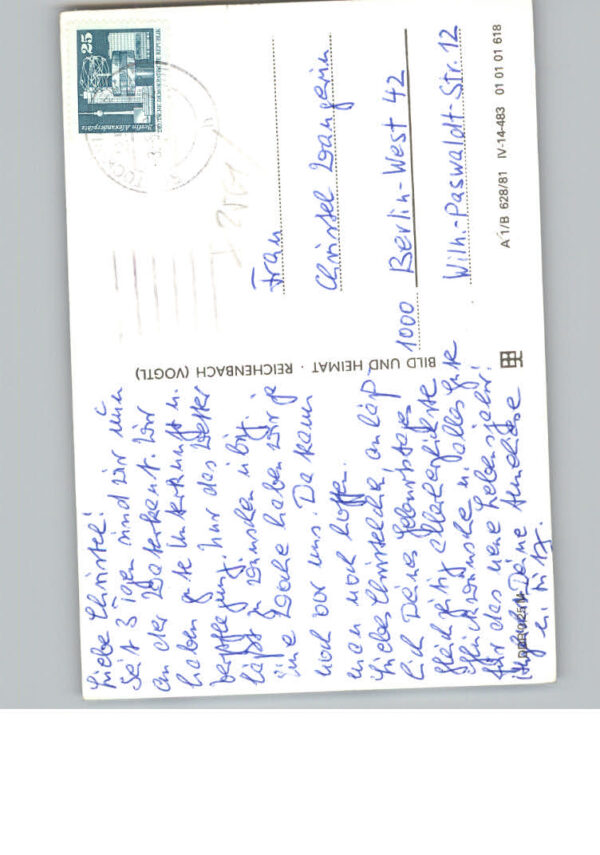 Liebe Christel!
Seit 3 Tagen sind wir nun
an der Waterkant. Wir
haben gute Unterkunft u.
Verpflegung. Nur das Wetter
läßt zu wünschen übrig.
Eine Woche haben wir ja
noch vor uns. Da kann
man noch hoffen.
Liebes Christelchen anläß-
lich Deines Geburtstages
gleichzeitig allerherzlichste
Glückwünsche u. alles Gute
für das neue Lebensjahr!
Deine Anneliese
BILD UND HEIMAT · REICHENBACH (VOGTL)
25
Berlin Alexanderplatz
DEUTSCHE DEMOKRATISCHE REPUBLIK
Frau
Christel Wangerin
1000 Berlin-West 42
Wilh.-Paswaldt-Str. 12
A 1/B 628/81 IV-14-483 01 01 01 618